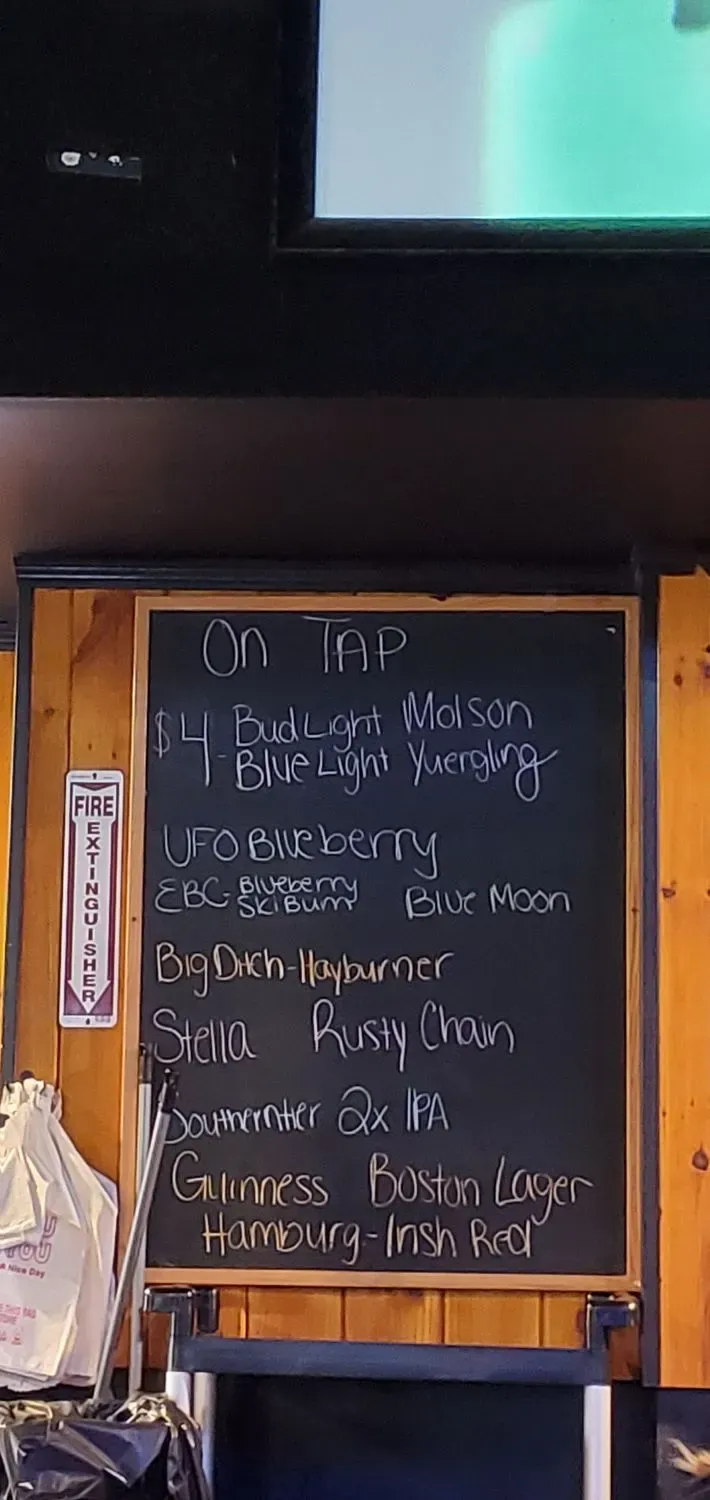 On TAP
$4 - Bud Light Molson
Blue Light Yuergling
UFO Blueberry
EBC - Blueberry Ski Bum Blue Moon
Big Ditch - Hayburner
Stella Rusty Chain
Southerntier 2x IPA
Guinness Boston Lager
Hamburg - Irish Red
FIRE
EXTINGUISHER
YOU
A Nice Day